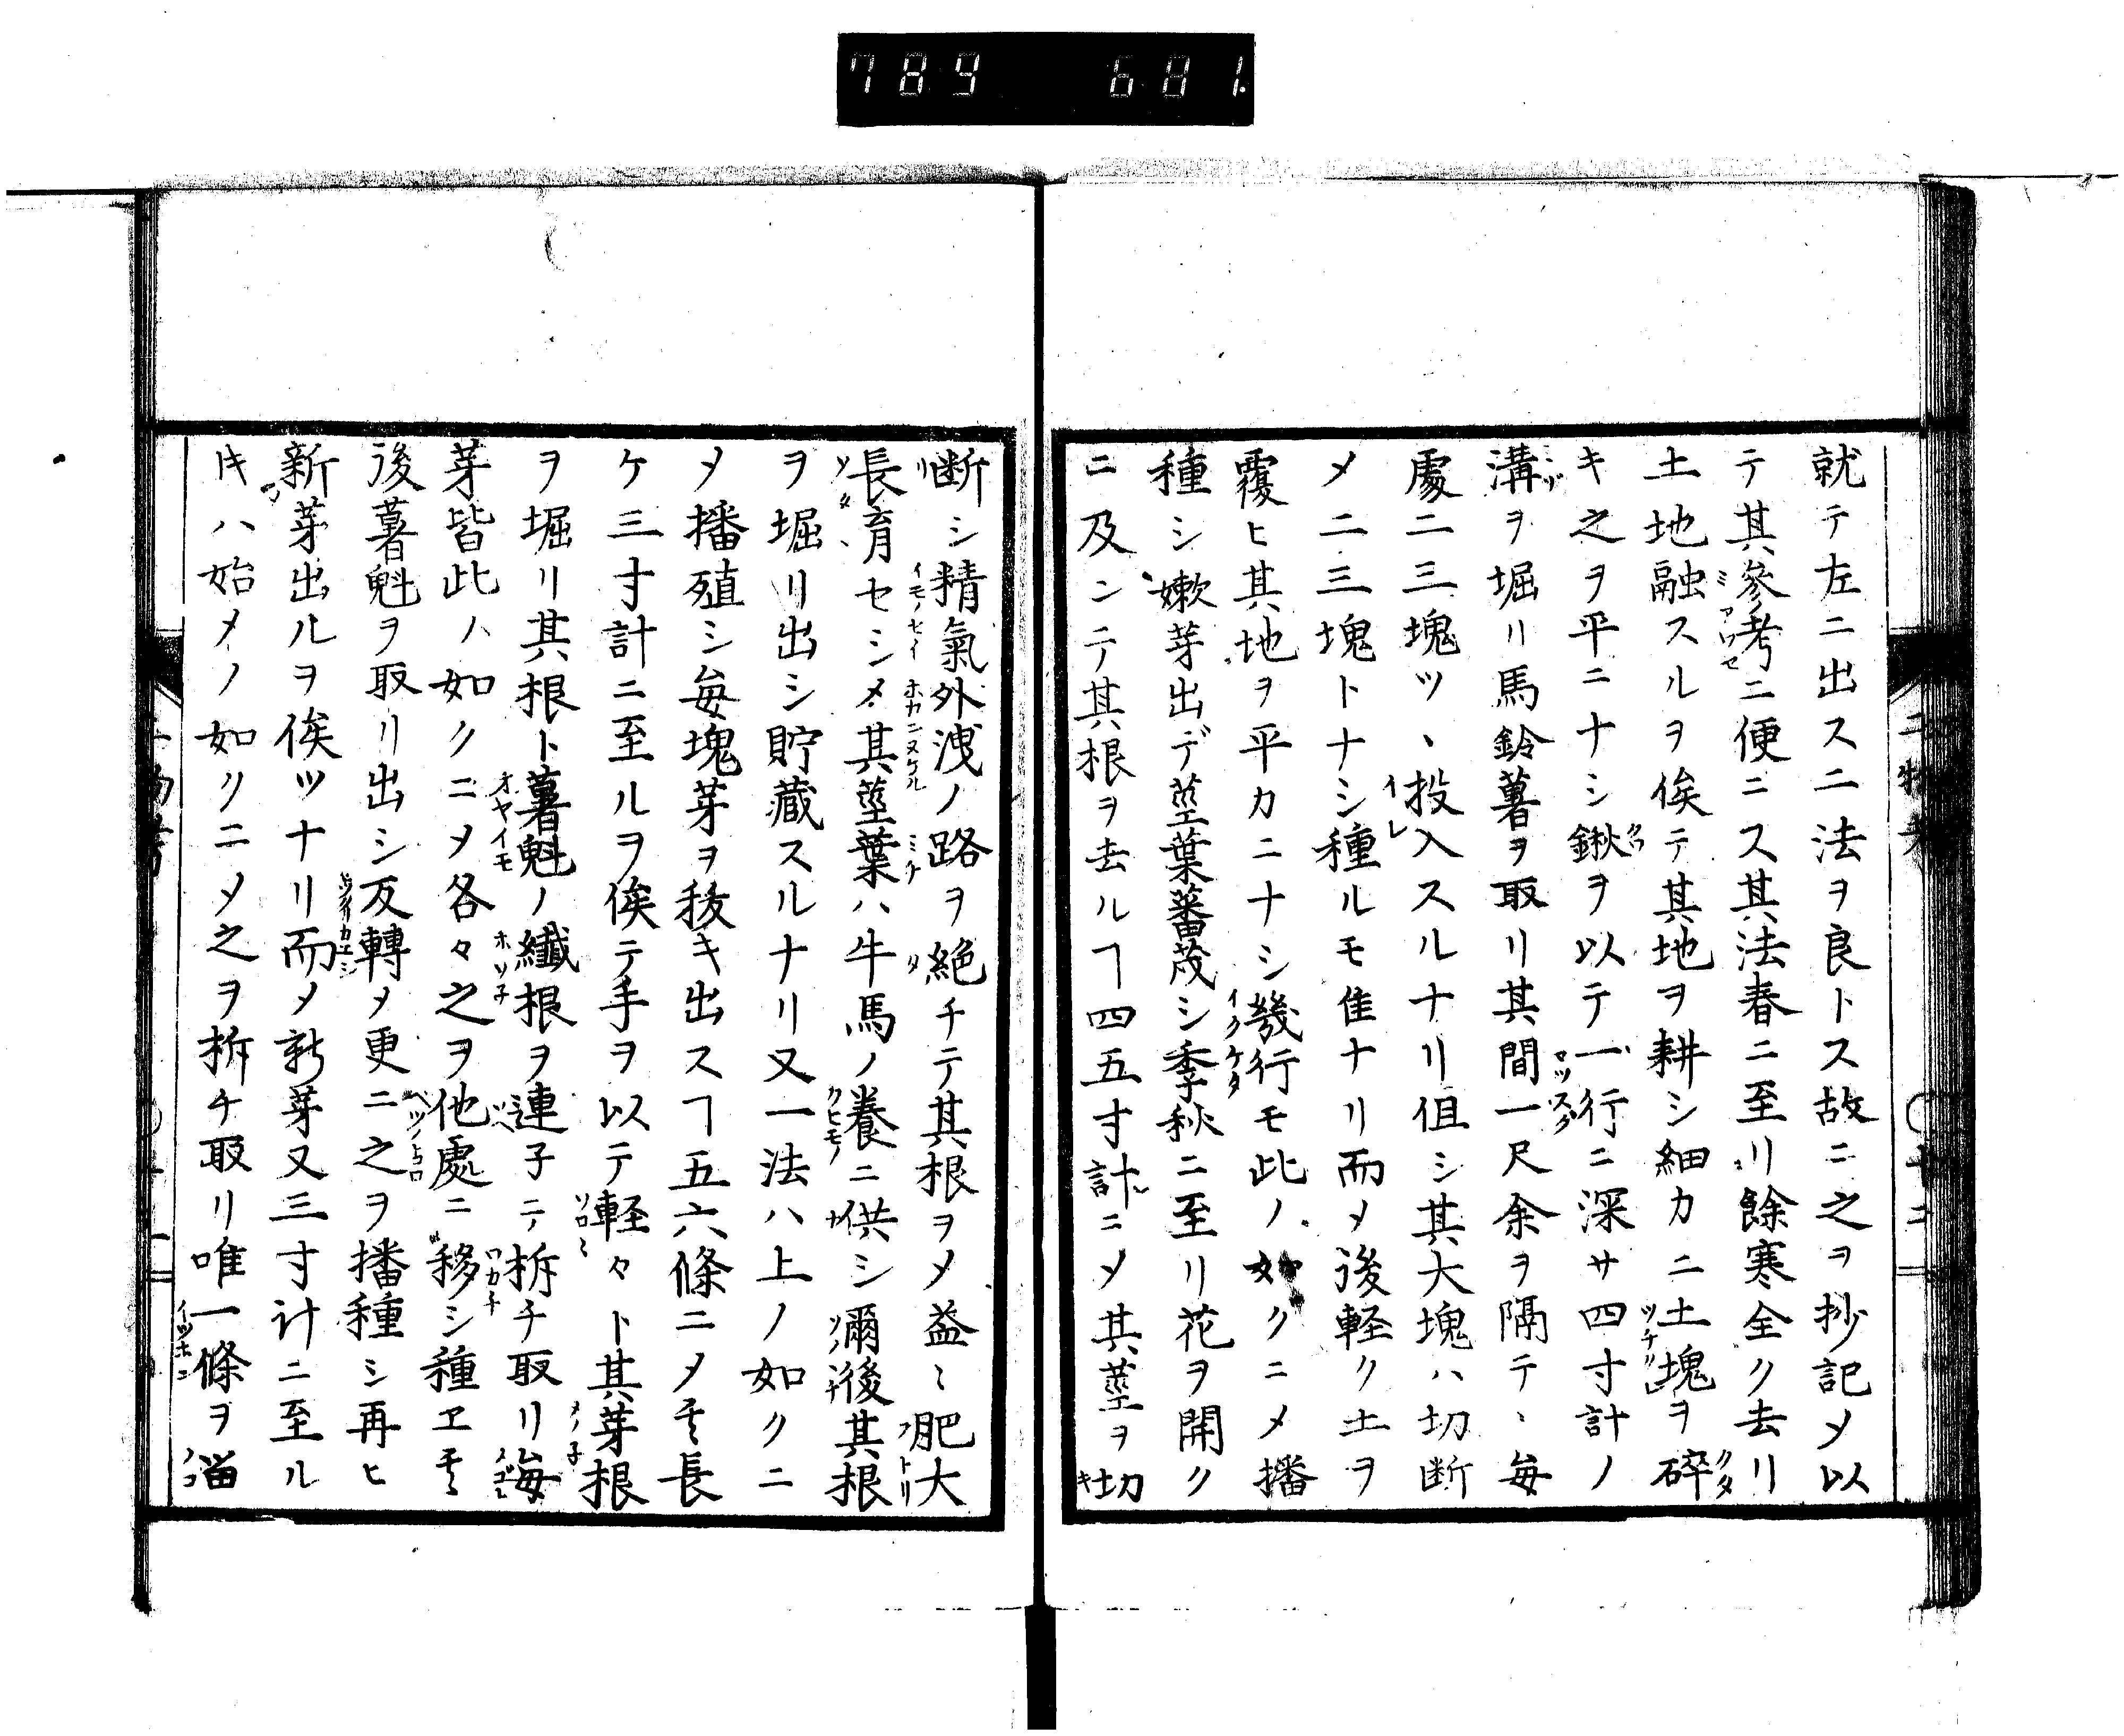 789 681.
就テ左ニ出ス二法ヲ良トス故ニ之ヲ抄記乄以
テ其參考ニ便ニス其法春ニ至リ餘寒全ク去リ
土地融スルヲ俟テ其地ヲ耕シ細カニ土塊ヲ碎
キ之ヲ平ニナシ鍬ヲ以テ一行ニ深サ四寸計ノ
溝ヲ堀リ馬鈴薯ヲ取リ其間一尺余ヲ隔テヽ毎
處二三塊ツヽ投入スルナリ但シ其大塊ハ切断
乄二三塊トナシ種ルモ隹ナリ而乄後軽ク土ヲ
覆ヒ其地ヲ平カニナシ幾行モ此ノ如クニ乄播
種シ嫩芽出デ莖葉蕃茂シ季秋ニ至リ花ヲ開ク
ニ及ンテ其根ヲ去ルヿ四五寸計ニ乄其莖ヲ切
断シ精氣外洩ノ路ヲ絶チテ其根ヲ乄益〻肥大
長育セシメ其莖葉ハ牛馬ノ養ニ供シ爾後其根
ヲ堀リ出シ貯藏スルナリ又一法ハ上ノ如クニ
乄播殖シ毎塊芽ヲ抜キ出スヿ五六條ニ乄其長
ケ三寸計ニ至ルヲ俟テ手ヲ以テ軽々ト其芽根
ヲ堀リ其根ト薯魁ノ纎根ヲ連子テ拆チ取リ毎
芽皆此ノ如クニ乄各々之ヲ他處ニ移シ種ヱ其
後薯魁ヲ取リ出シ反轉乄更ニ之ヲ播種シ再ヒ
新芽出ルヲ俟ツナリ而乄新芽又三寸计ニ至ル
片ハ始メノ如クニ乄之ヲ拆チ取リ唯一條ヲ畄